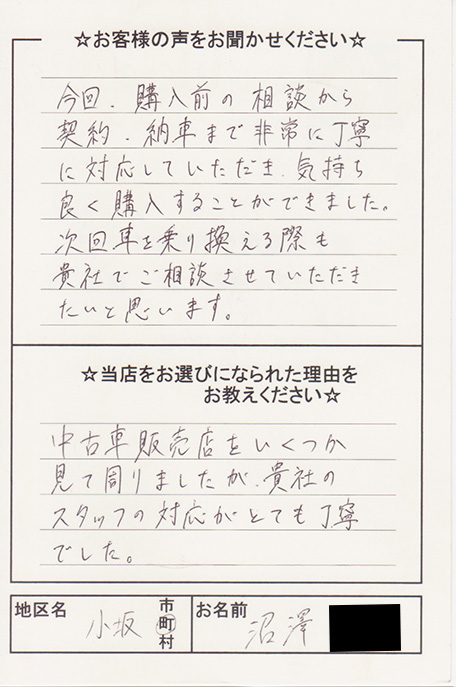 ☆お客様の声をお聞かせください☆
今回、購入前の相談から
契約、納車まで非常に丁寧
に対応していただき、気持ち
良く購入することができました。
次回車を乗り換える際も
貴社でご相談させていただき
たいと思います。
☆当店をお選びになられた理由を
お教えください☆
中古車販売店をいくつか
見て周りましたが、貴社の
スタッフの対応がとても丁寧
でした。
地区名 小坂 市町村 お名前 沼澤